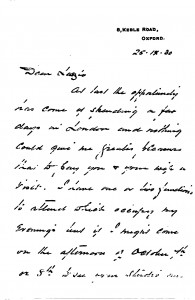 8, KEBLE ROAD,
OXFORD.
26·IX·30
Dear Laszlo
At last the opportunity
has come of spending a few
days in London and nothing
could give me greater pleasure
than to pay you & your wife a
visit. I have one or two functions
to attend which occupy my
evenings but if I might come
on the afternoon of October 7th
or 8th I see your studio